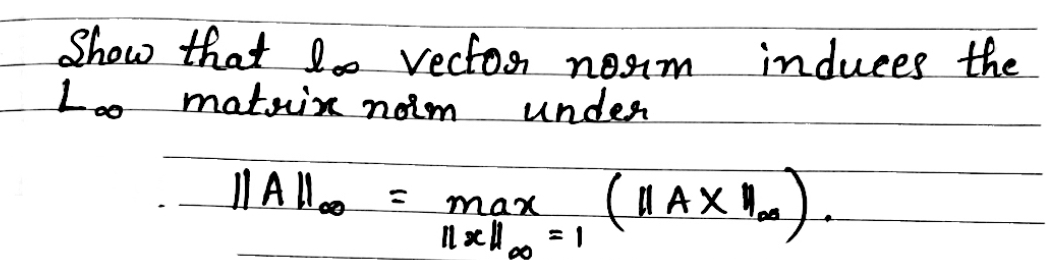 Show that l∞ vector norm induces the
L∞ matrix norm under
. ||A||∞ = max (||AX||∞).
||x||∞ = 1